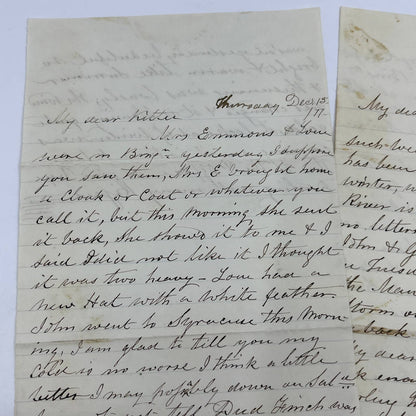 Thursday Dec 13
/77.
My dear Kittee
Mrs Emmons & Loue
were in Bing- yesterday I suppose
you saw them, Mrs E brought home
a Cloak or Coat or whatever you
call it, but this Morning she sent
it back, She showed it to me & I
said I did not like it I thought
it was two heavy - Loue had a
new Hat with a White feather.
John went to Syracuse this Morn
ing, I am glad to tell you my
Cold is no worse I think a little
better I may possibly down on Sat
Finch was
My dea
such we
has been
winter, w
River is
no letter
John & G
Tues
the Man
Storm o
back
My dear